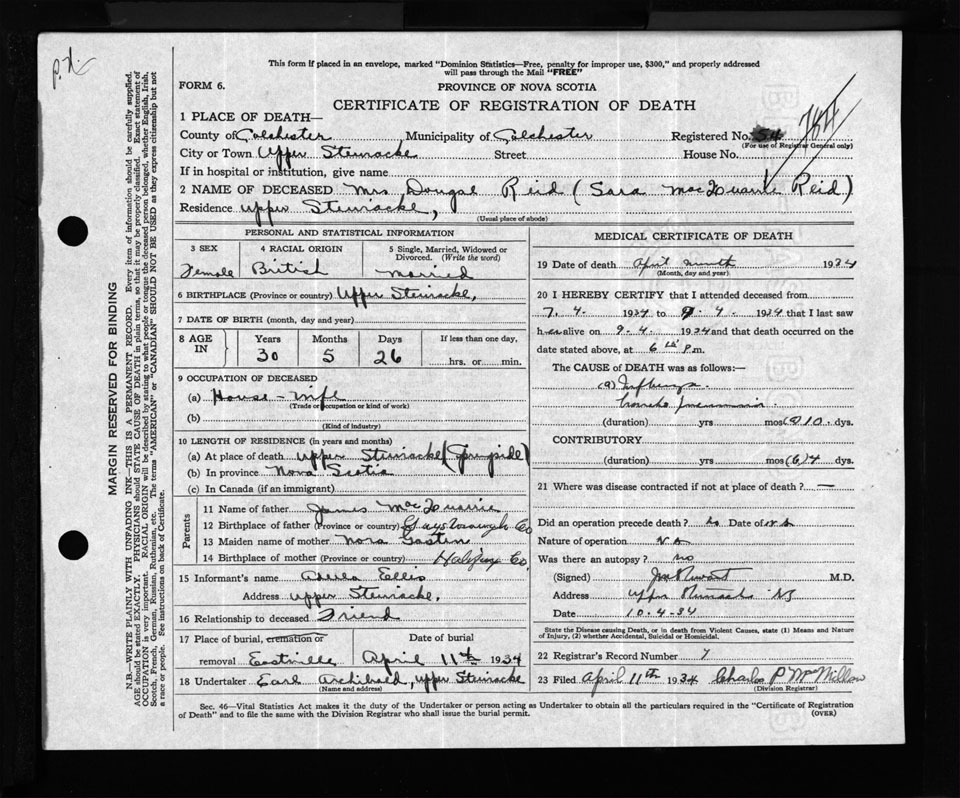 P.X.
This form if placed in an envelope, marked "Dominion Statistics—Free, penalty for improper use, $300," and properly addressed
will pass through the Mail "FREE"
FORM 6. PROVINCE OF NOVA SCOTIA
CERTIFICATE OF REGISTRATION OF DEATH
1 PLACE OF DEATH—
County of Colchester Municipality of Colchester Registered No. 54
(For use of Registrar General only)
City or Town Upper Stewiacke Street House No.
If in hospital or institution, give name
2 NAME OF DECEASED Mrs Dougal Reid (Sara MacQuarrie Reid)
Residence Upper Stewiacke,
(Usual place of abode)
PERSONAL AND STATISTICAL INFORMATION
3 SEX 4 RACIAL ORIGIN 5 Single, Married, Widowed or
Divorced. (Write the word)
Female British Married
6 BIRTHPLACE (Province or country) Upper Stewiacke,
7 DATE OF BIRTH (month, day and year)
8 AGE IN Years Months Days If less than one day,
30 5 26 hrs. or min.
9 OCCUPATION OF DECEASED
(a) House-wife
(Trade or occupation or kind of work)
(b)
(Kind of industry)
10 LENGTH OF RESIDENCE (in years and months)
(a) At place of death Upper Stewiacke (Springside)
(b) In province Nova Scotia
(c) In Canada (if an immigrant)
Parents
11 Name of father James MacQuarrie
12 Birthplace of father (Province or country) Guysborough Co
13 Maiden name of mother Nora
14 Birthplace of mother (Province or country) Halifax Co.
15 Informant's name Ellis
Address Upper Stewiacke,
16 Relationship to deceased Friend
17 Place of burial, cremation or Date of burial
removal Eastville April 11th 1934
18 Undertaker Earl Archibald, Upper Stewiacke
(Name and address)
MEDICAL CERTIFICATE OF DEATH
19 Date of death April ninth 1934
(Month, day and year)
20 I HEREBY CERTIFY that I attended deceased from
7. 4. 1934 to 9. 4. 1934 that I last saw
her alive on 9. 4. 1934 and that death occurred on the
date stated above, at 6 P.m.
The CAUSE of DEATH was as follows:—
(a) Influenza
broncho pneumonia
(duration) yrs mos 10 dys.
CONTRIBUTORY
(duration) yrs mos (6) 4 dys.
21 Where was disease contracted if not at place of death? —
Did an operation precede death? no Date of
Nature of operation
Was there an autopsy? no
(Signed) M.D.
Address Upper Stewiacke NS
Date 10-4-34
State the Disease causing Death, or in death from Violent Causes, state (1) Means and Nature
of Injury, (2) whether Accidental, Suicidal or Homicidal.
22 Registrar's Record Number 7
23 Filed April 11th 1934 Charles P McMillan
(Division Registrar)
Sec. 46—Vital Statistics Act makes it the duty of the Undertaker or person acting as Undertaker to obtain all the particulars required in the "Certificate of Registration
of Death" and to file the same with the Division Registrar who shall issue the burial permit. (OVER)
MARGIN RESERVED FOR BINDING
N.B.—WRITE PLAINLY WITH UNFADING INK—THIS IS A PERMANENT RECORD. Every item of information should be carefully supplied.
AGE should be stated EXACTLY. PHYSICIANS should STATE CAUSE OF DEATH in plain terms, so that it may be properly classified. Exact statement of
OCCUPATION is very important. RACIAL ORIGIN will be described by stating to what people or tongue the deceased person belonged, whether English, Irish,
Scotch, French, German, Russian, Ruthenian, etc. The terms "AMERICAN" or "CANADIAN" SHOULD NOT BE USED as they express citizenship but not
a race or people. See instructions on back of Certificate.